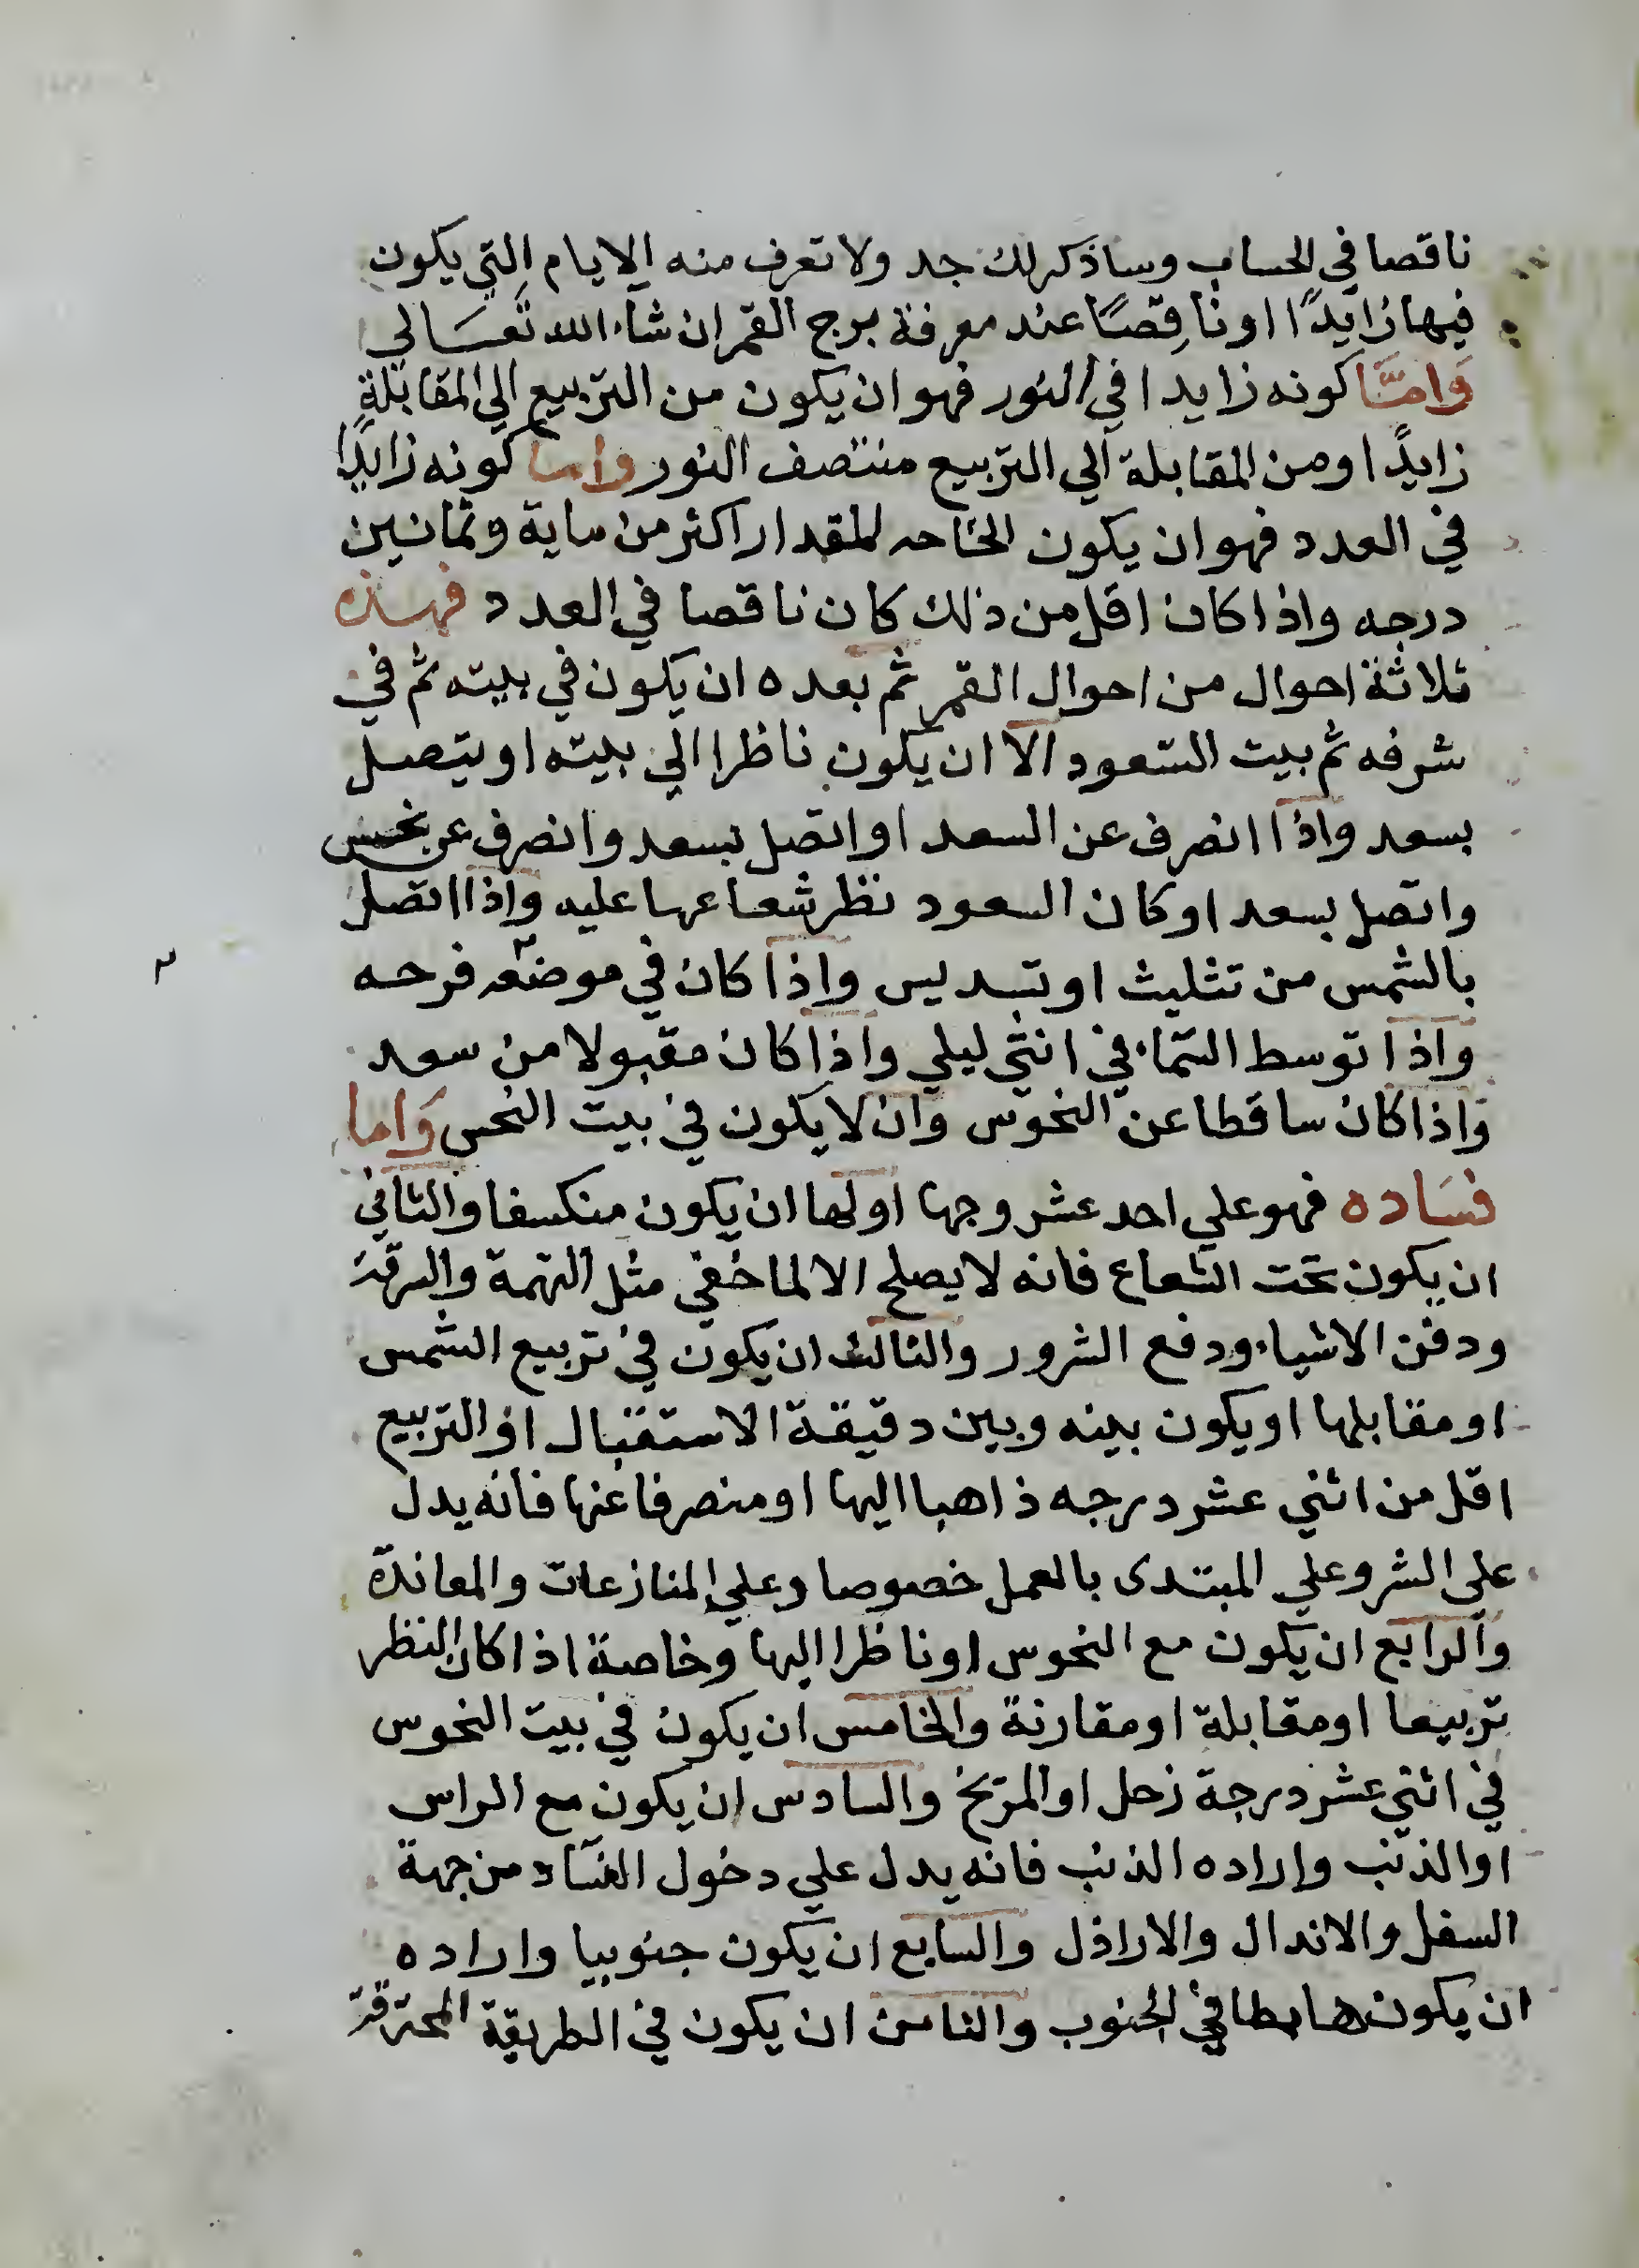 ناقصا في الحساب وساذكر لك جد ولا تعرف منه الايام التي يكون
فيها زايدًا او ناقِصًا عند معرفة برج القمر ان شاء الله تَعَالي
وَامَّا كونه زايدا في النور فهو ان يكون من التربيع الي المقابلة
زايدًا ومن المقابلة الي التربيع منتصف النور واما كونه زايدًا
في العدد فهو ان يكون المقدار اكثر من ماية وثمانين
درجه واذا كان اقل من ذلك كان ناقصا في العدد فهذه
ثلاثة احوال من احوال القمر ثم بعده ان يكون في بيته ثم في
شرفه ثم بيت السعود الا ان يكون ناظرا الي بيته او يتصل
بسعد واذا انصرف عن السعد او اتصل بسعد وانصرف عن نحس
واتصل بسعد او كان السعود نظر شعاعها عليه واذا اتصل
بالشمس من تثليث او تسديس واذا كان في موضع فرحه
واذا توسط السماء في انثي ليلي واذا كان مقبولا من سعد
واذا كان ساقطا عن النحوس وان لا يكون في بيت النحس وَاما
فسَاده فهو علي احد عشر وجها اولها ان يكون منكسفا والثاني
ان يكون تحت الشعاع فانه لا يصلح الا لما خفي مثل التهمة والسرقة
ودفن الاشياء ودفع الشرور والثالث ان يكون في تربيع الشمس
او مقابلها او يكون بينه وبين دقيقة الاستقبال او التربيع
اقل من اثني عشر درجه ذاهبا اليها او منصرفا عنها فانه يدل
علي الشر وعلي المبتدي بالعمل خصوصا وعلي المنازعات والمعاندة
والرابع ان يكون مع النحوس او ناظرا اليها وخاصة اذا كان النظر
تربيعا او مقابلة او مقارنة والخامس ان يكون في بيت النحوس
في اثني عشر درجة زحل او المريخ والسادس ان يكون مع الراس
او الذنب واراده الذنب فانه يدل علي دخول الفساد من جهة
السفل والاندال والاراذل والسابع ان يكون جنوبيا واراده
ان يكون هابطا في الجنوب والثامن ان يكون في الطريقة المحترقة